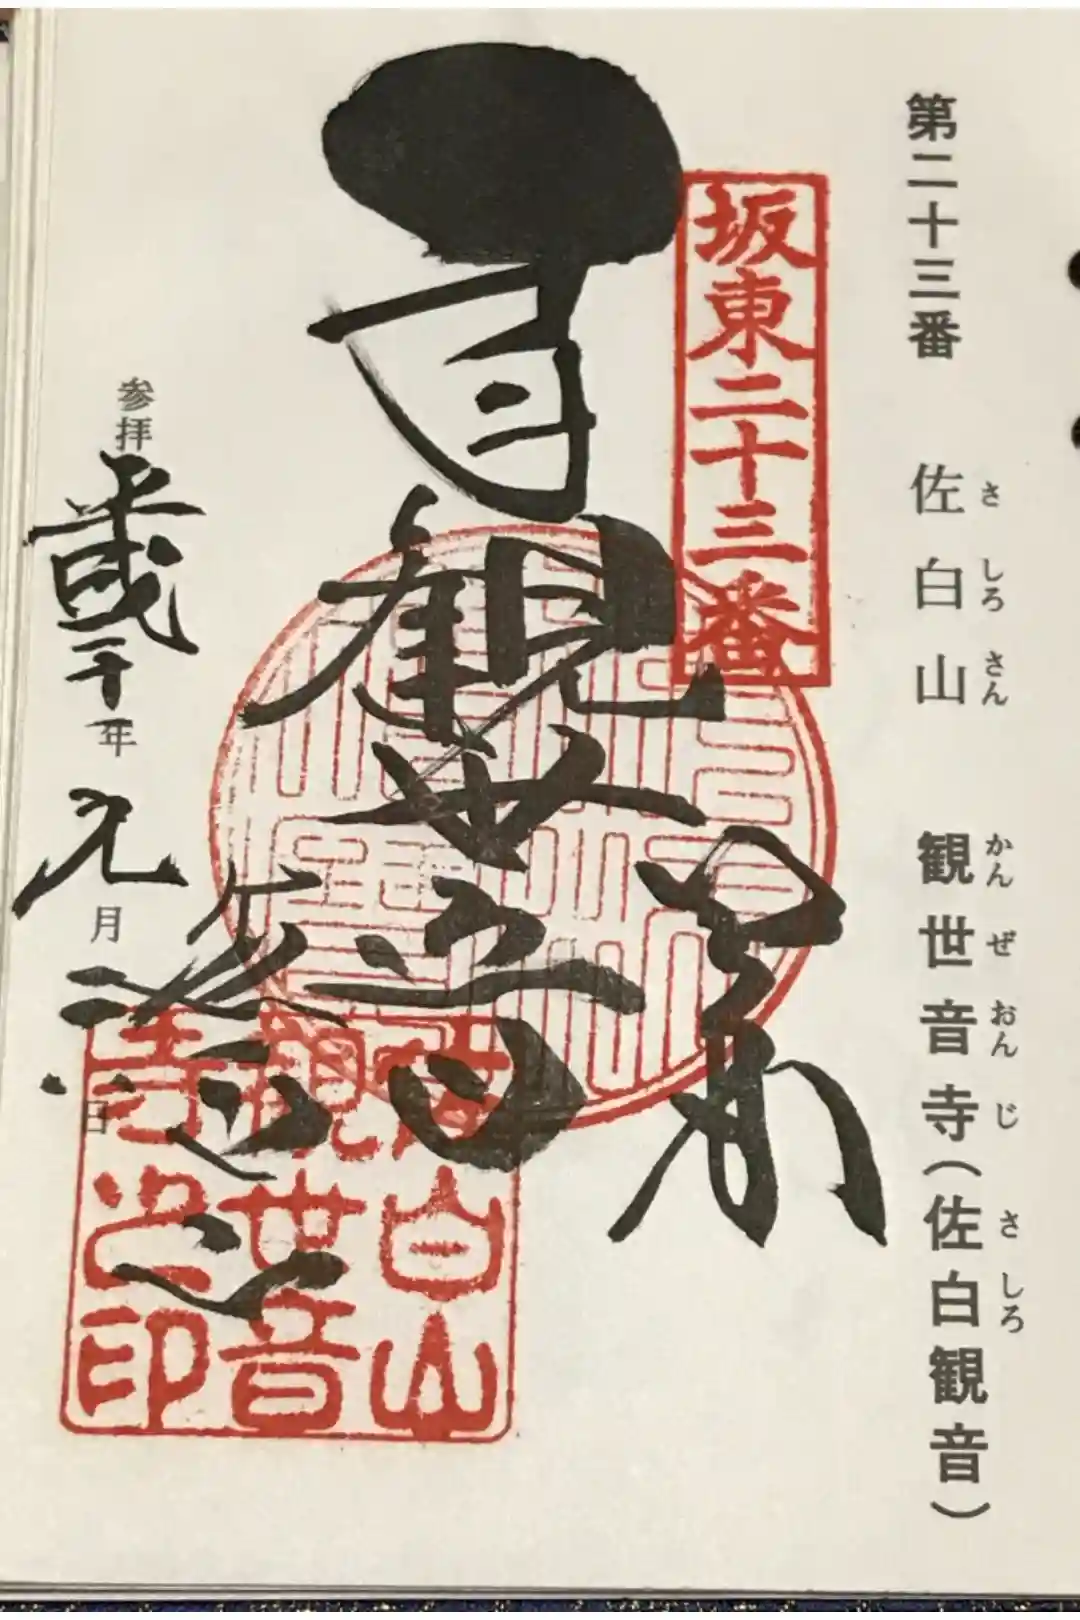 第二十三番 佐白山 観世音寺(佐白観音)
さ しろ さん かん ぜ おん じ さ しろ
坂東二十三番
観世音
佐白山
観世音
寺之印
参拝 平成三十年 元月 日